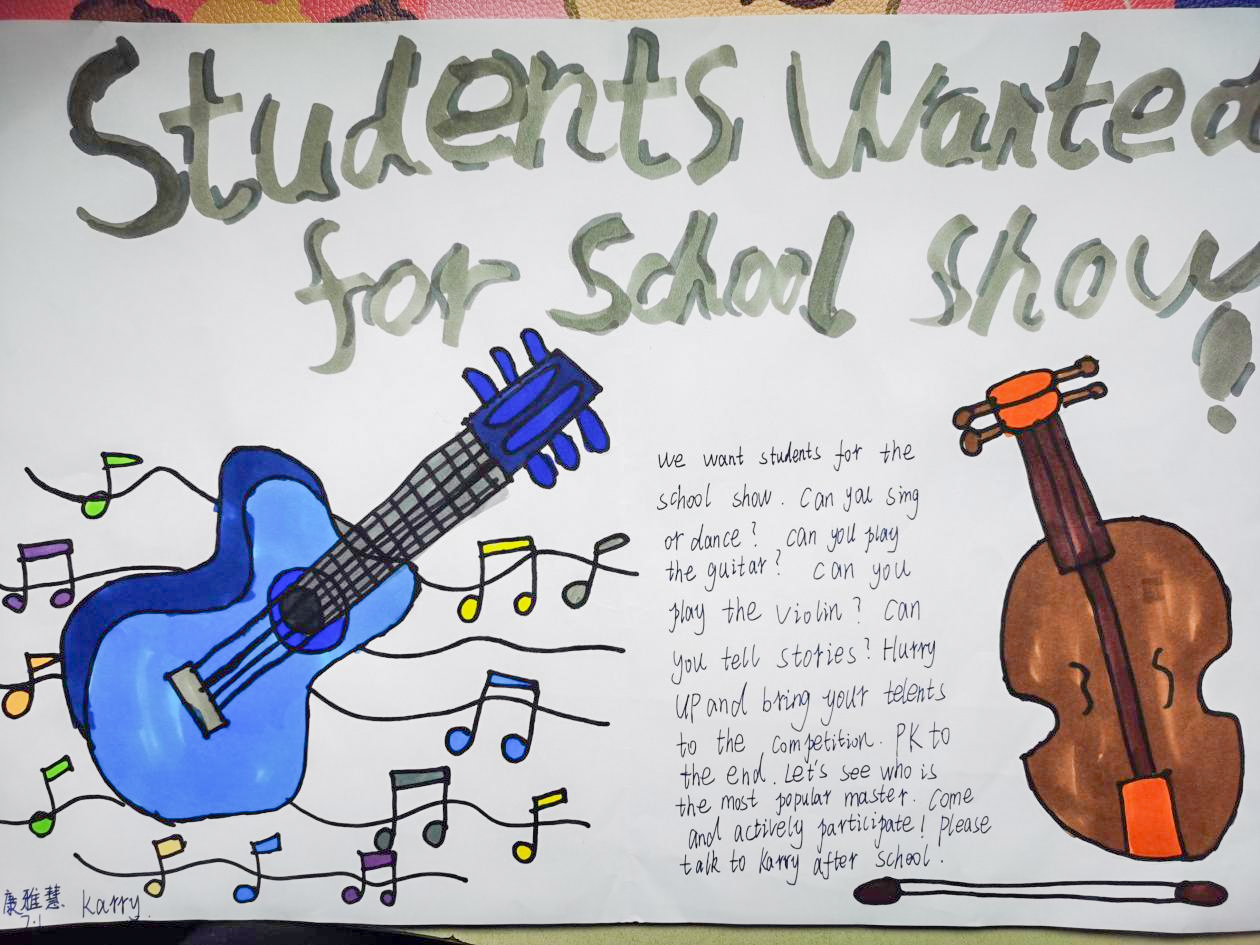 Students Wanted
for School show!
we want students for the
school show. Can you sing
or dance? can you play
the guitar? can you
play the violin? can
you tell stories? Hurry
UP and bring your telents
to the competition. PK to
the end. Let's see who is
the most popular master. Come
and actively participate! please
talk to Karry after school.
康雅慧. Karry.
7.1